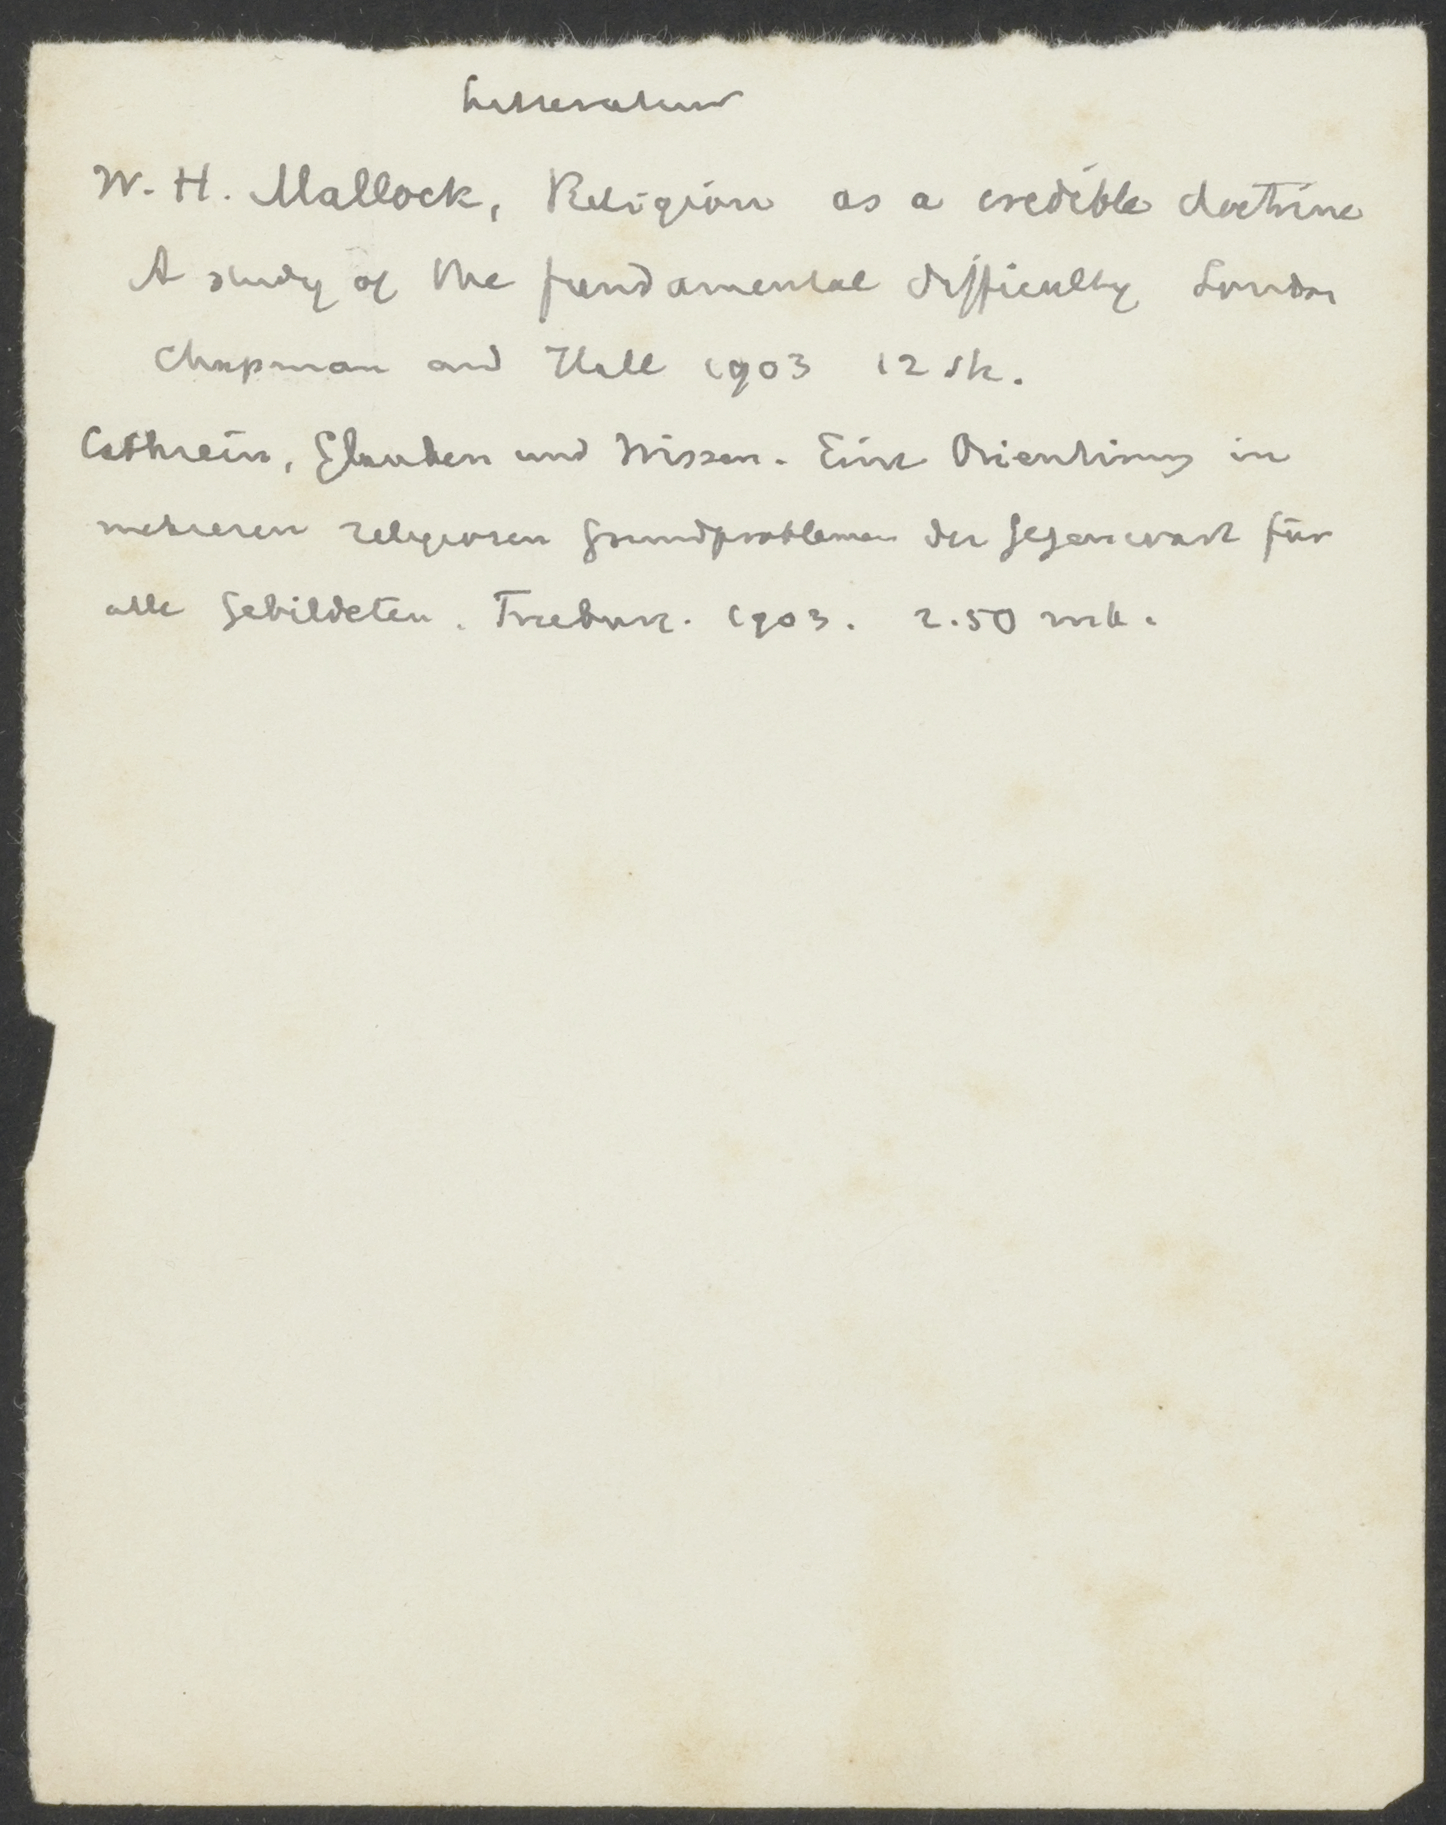 Litteratuur
W. H. Mallock, Religion as a credible doctrine
A study of the fundamental difficulty London
Chapman and Hall 1903 12 sh.
Cathrein, Glauben und Wissen. Eine Orientirung in
mehreren religiosen Grundproblemen der Gegenwart für
alle Gebildeten. Freiburg. 1903. 2.50 mk.